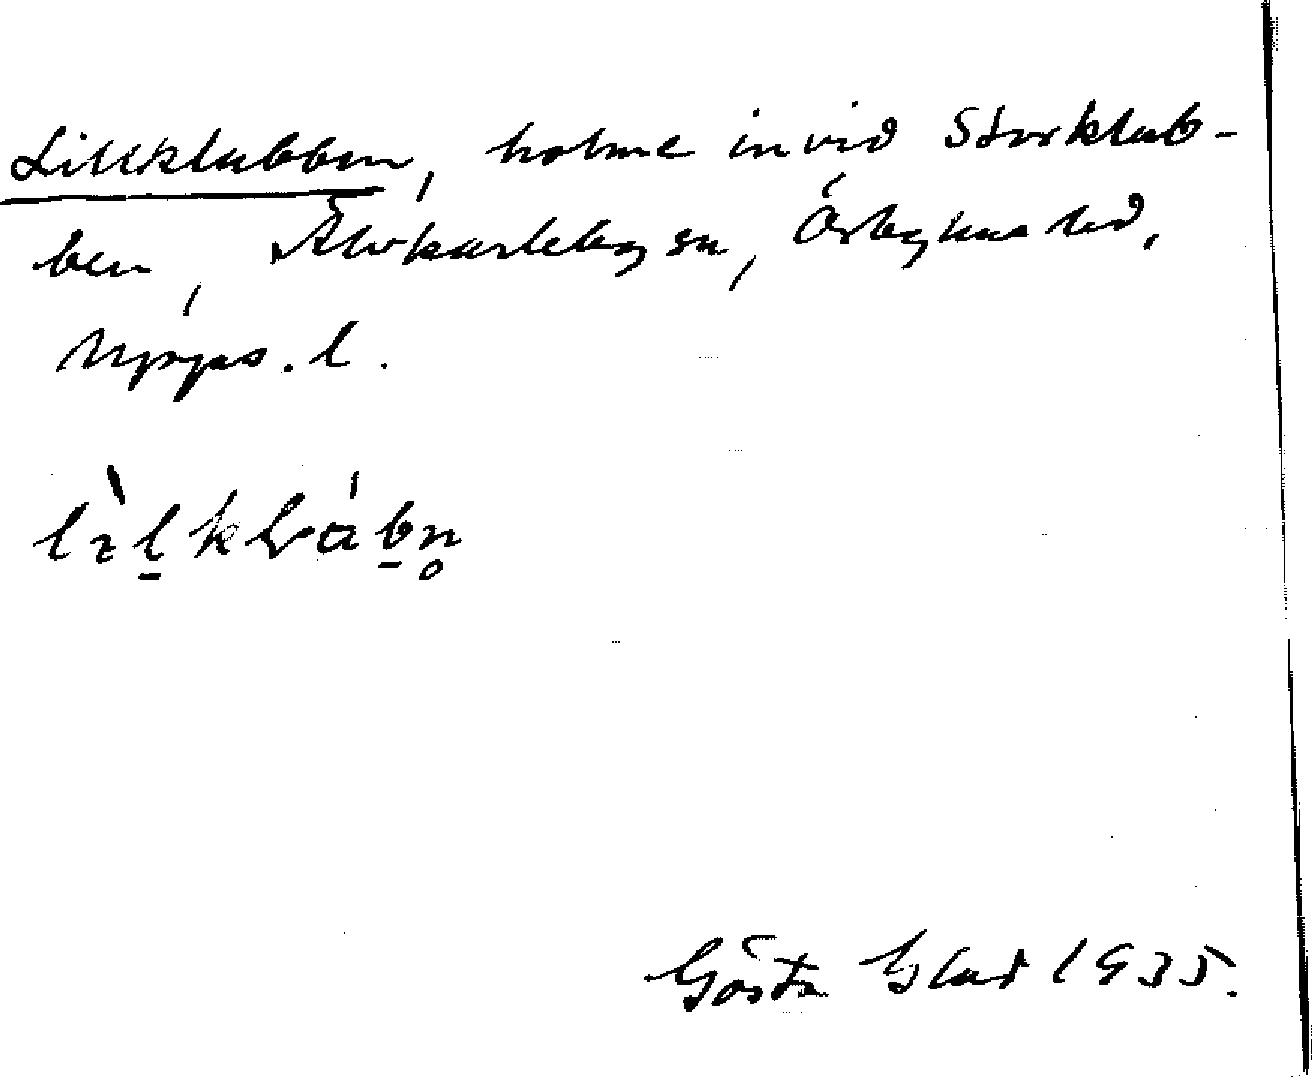 Lillklubben, holme invid Storklub-
ben, Älvkarleby sn, Örbyhus hd,
Uppsa. l.
Gösta Glad 1935.